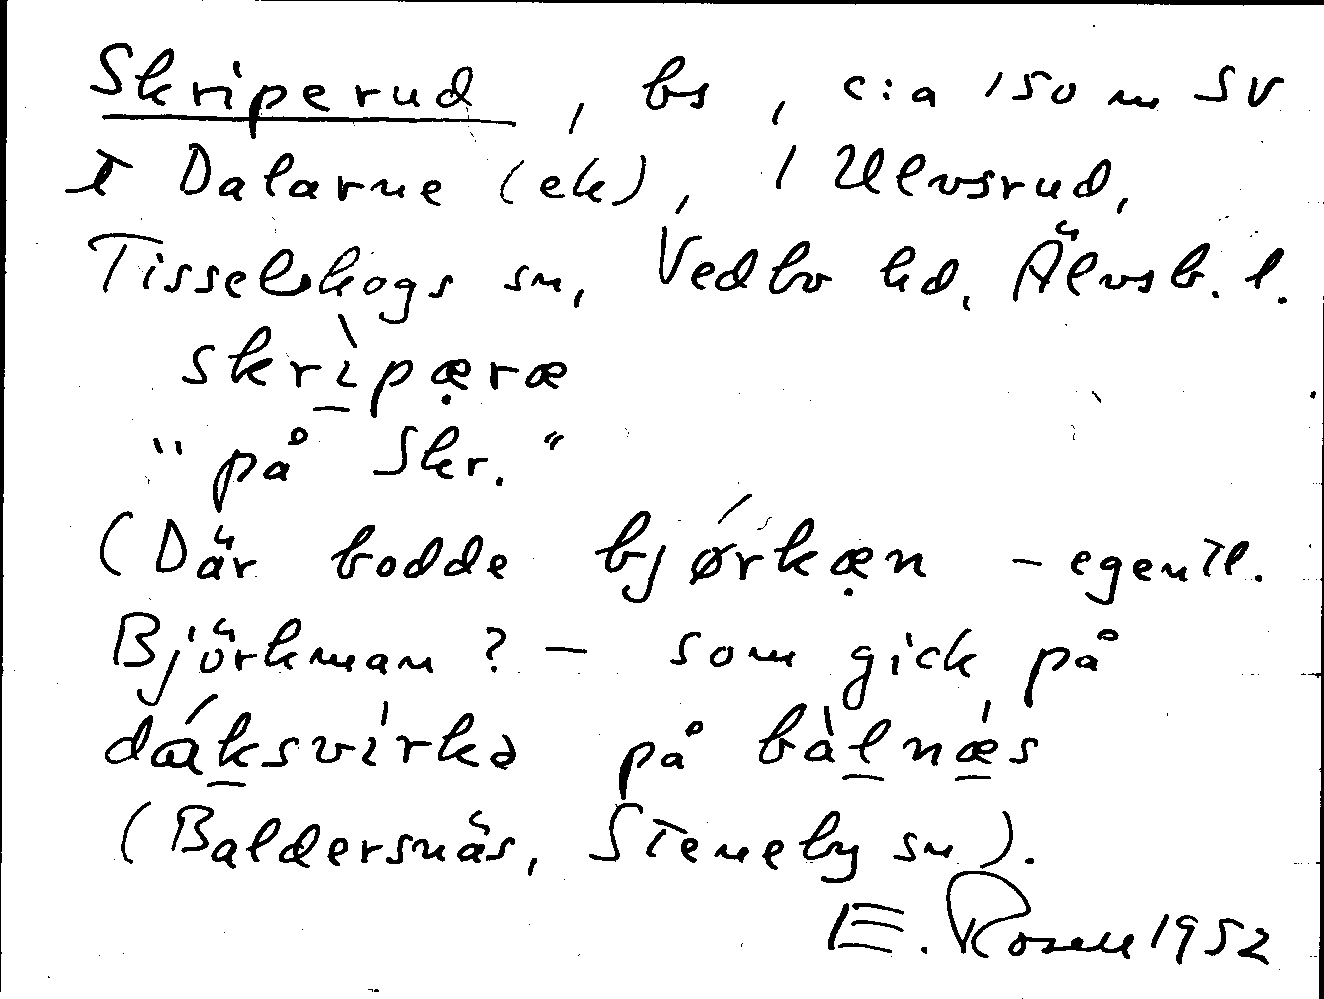 Skriperud, bs, c:a 150 m SV
t Dalarne (ek), / Ulvsrud,
Tisselskogs sn, Vedbo hd, Älvsb. l.
skrì̱pæ̣ræ
"på Skr."
(Där bodde bjǿrkæ̣n – egentl.
Björkman? – som gick på
dáḵsvìrkə på bàḻnǽ̱s
(Baldersnäs, Steneby sn).
E. Rosell 1952